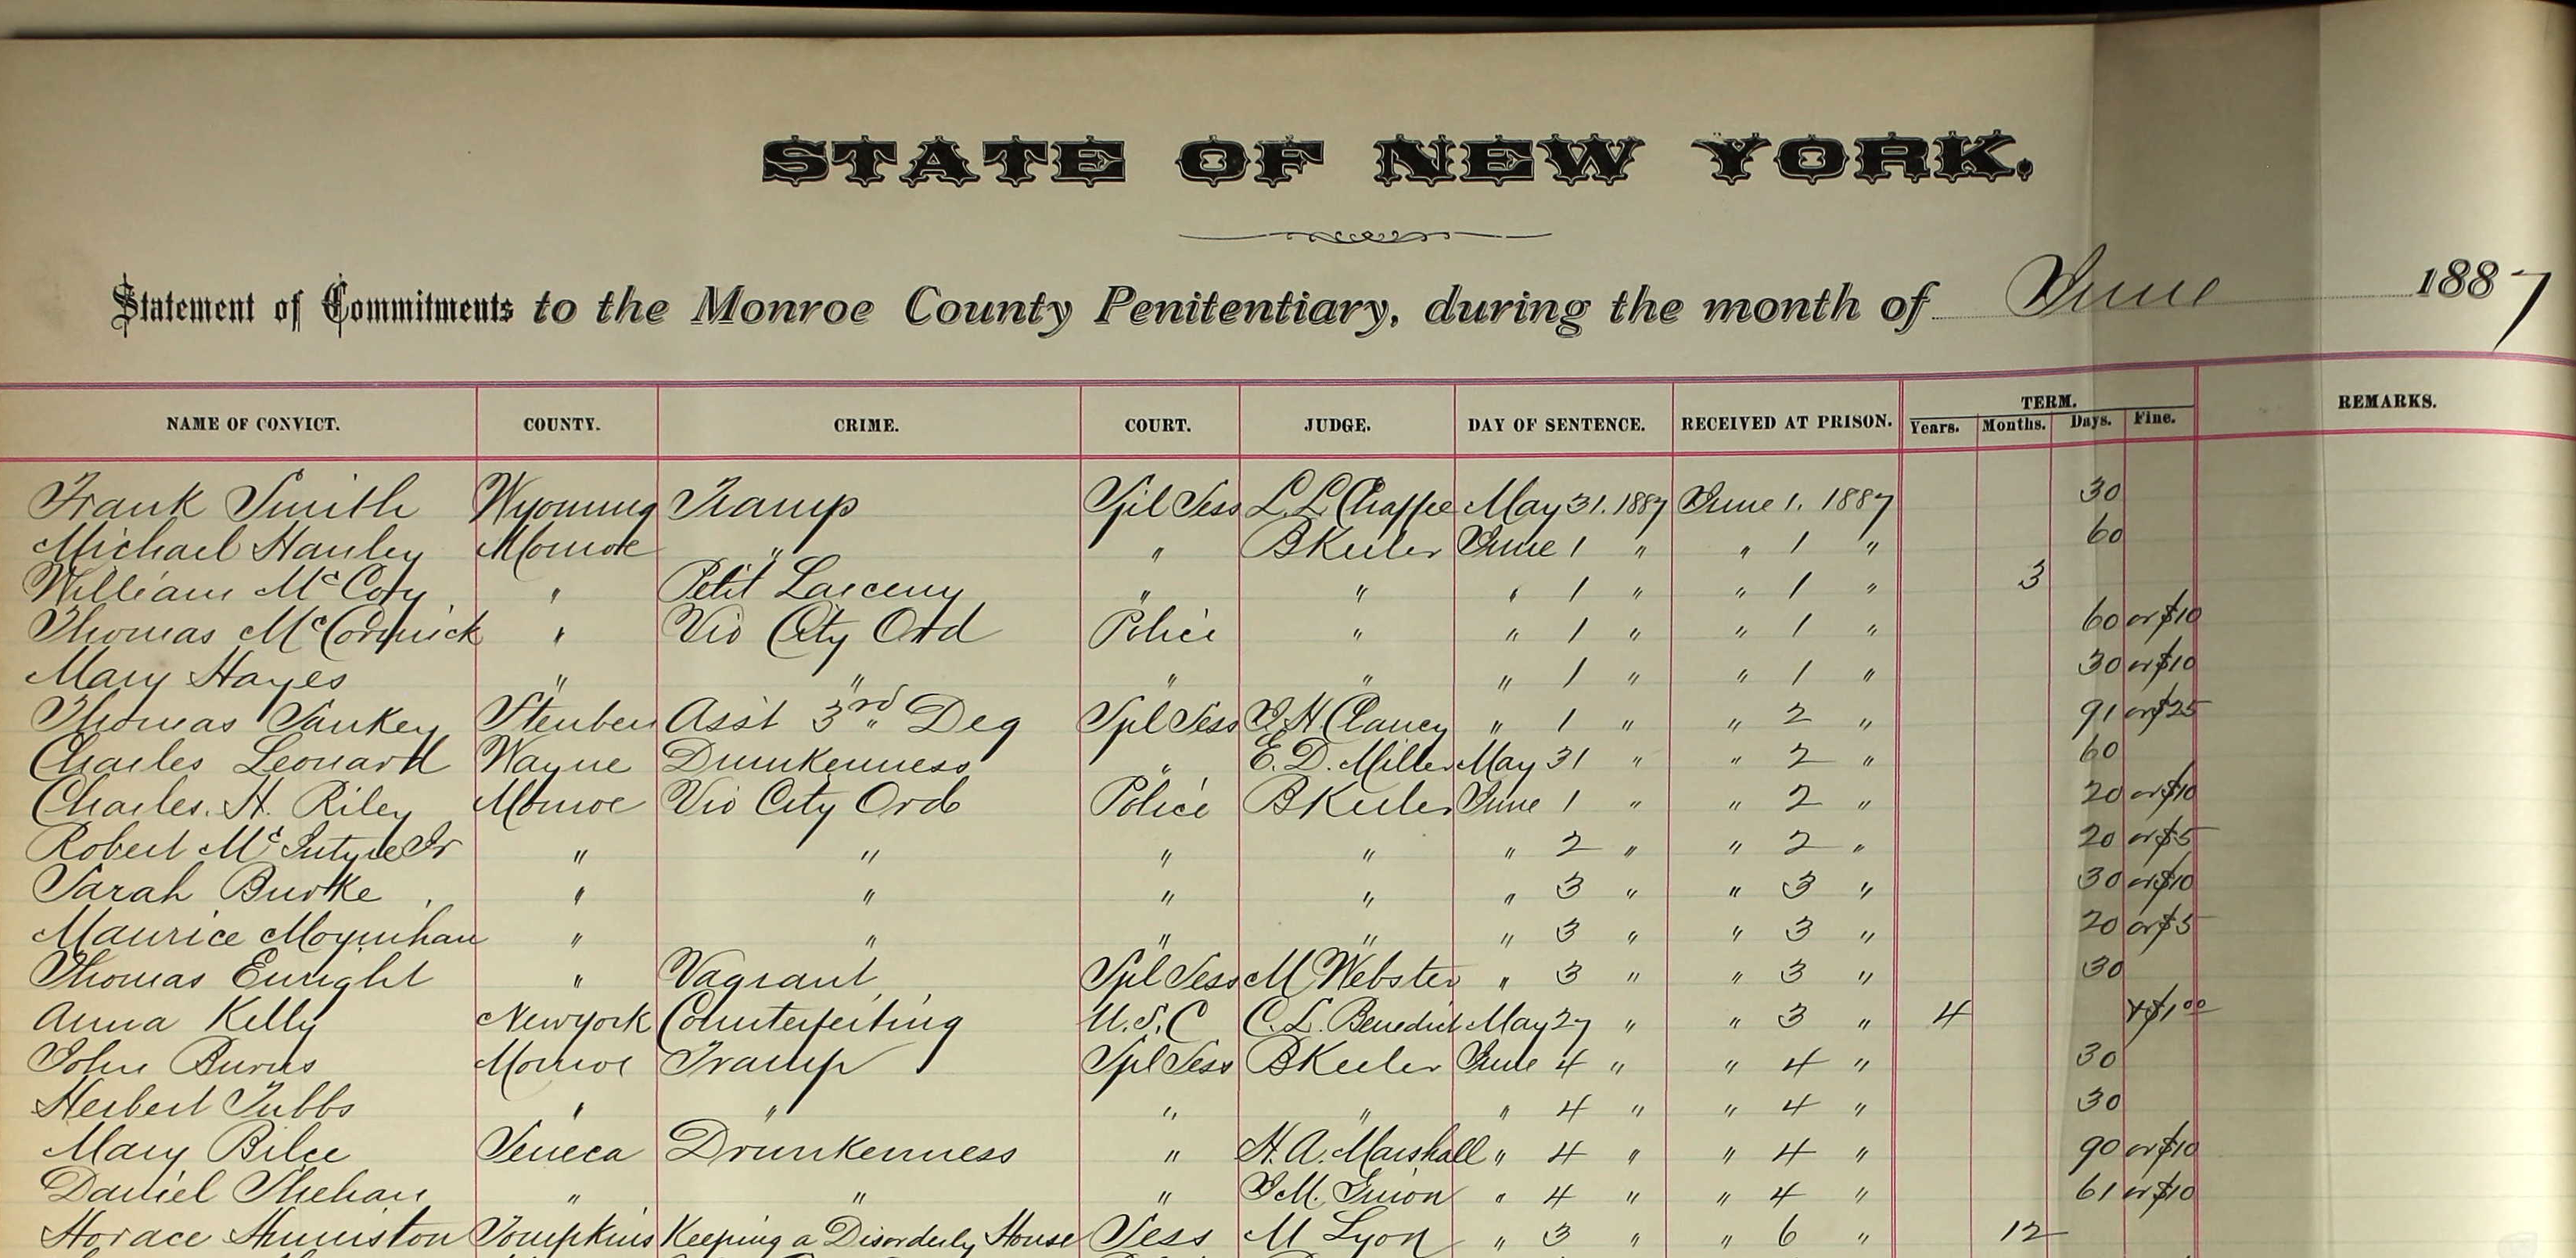 STATE OF NEW YORK.
Statement of Commitments to the Monroe County Penitentiary, during the month of June 1887
NAME OF CONVICT. COUNTY. CRIME. COURT. JUDGE. DAY OF SENTENCE. RECEIVED AT PRISON. TERM. REMARKS.
Years. Months. Days. Fine.
Frank Smith Wyoming Tramp Spl Sess L. L. Chaffee May 31. 1887 June 1. 1887 30
Michael Hanley Monroe " " B Keeler June 1 " " 1 " 60
William McCoy " Petit Larceny " " " 1 " " 1 " 3
Thomas McCormick " Vio City Ord Police " " 1 " " 1 " 60 or $10
Mary Hayes " " " " " 1 " " 1 " 30 or $10
Thomas Sankey Steuben Ass't 3rd Deg Spl Sess J. H. Clancy " 1 " " 2 " 91 or $25
Charles Leonard Wayne Drunkenness " E. D. Miller May 31 " " 2 " 60
Charles. H. Riley Monroe Vio City Ord Police B Keeler June 1 " " 2 " 20 or $10
Robert McIntyre Jr " " " " " 2 " " 2 " 20 or $5
Sarah Burke " " " " " 3 " " 3 " 30 or $10
Maurice Moynihan " " " " " 3 " " 3 " 20 or $5
Thomas Enright " Vagrant Spl Sess M Webster " 3 " " 3 " 30
Anna Kelly New York Counterfeiting U. S. C C. L. Benedict May 27 " " 3 " 4 & $1 00
John Burns Monroe Tramp Spl Sess B Keeler June 4 " " 4 " 30
Herbert Tubbs " " " " " 4 " " 4 " 30
Mary Bilce Seneca Drunkenness " H. A. Marshall " 4 " " 4 " 90 or $10
Daniel Shehan " " " J M. Guion " 4 " " 4 " 61 or $10
Horace Humiston Tompkins Keeping a Disorderly House Sess M Lyon " 3 " " 6 " 12